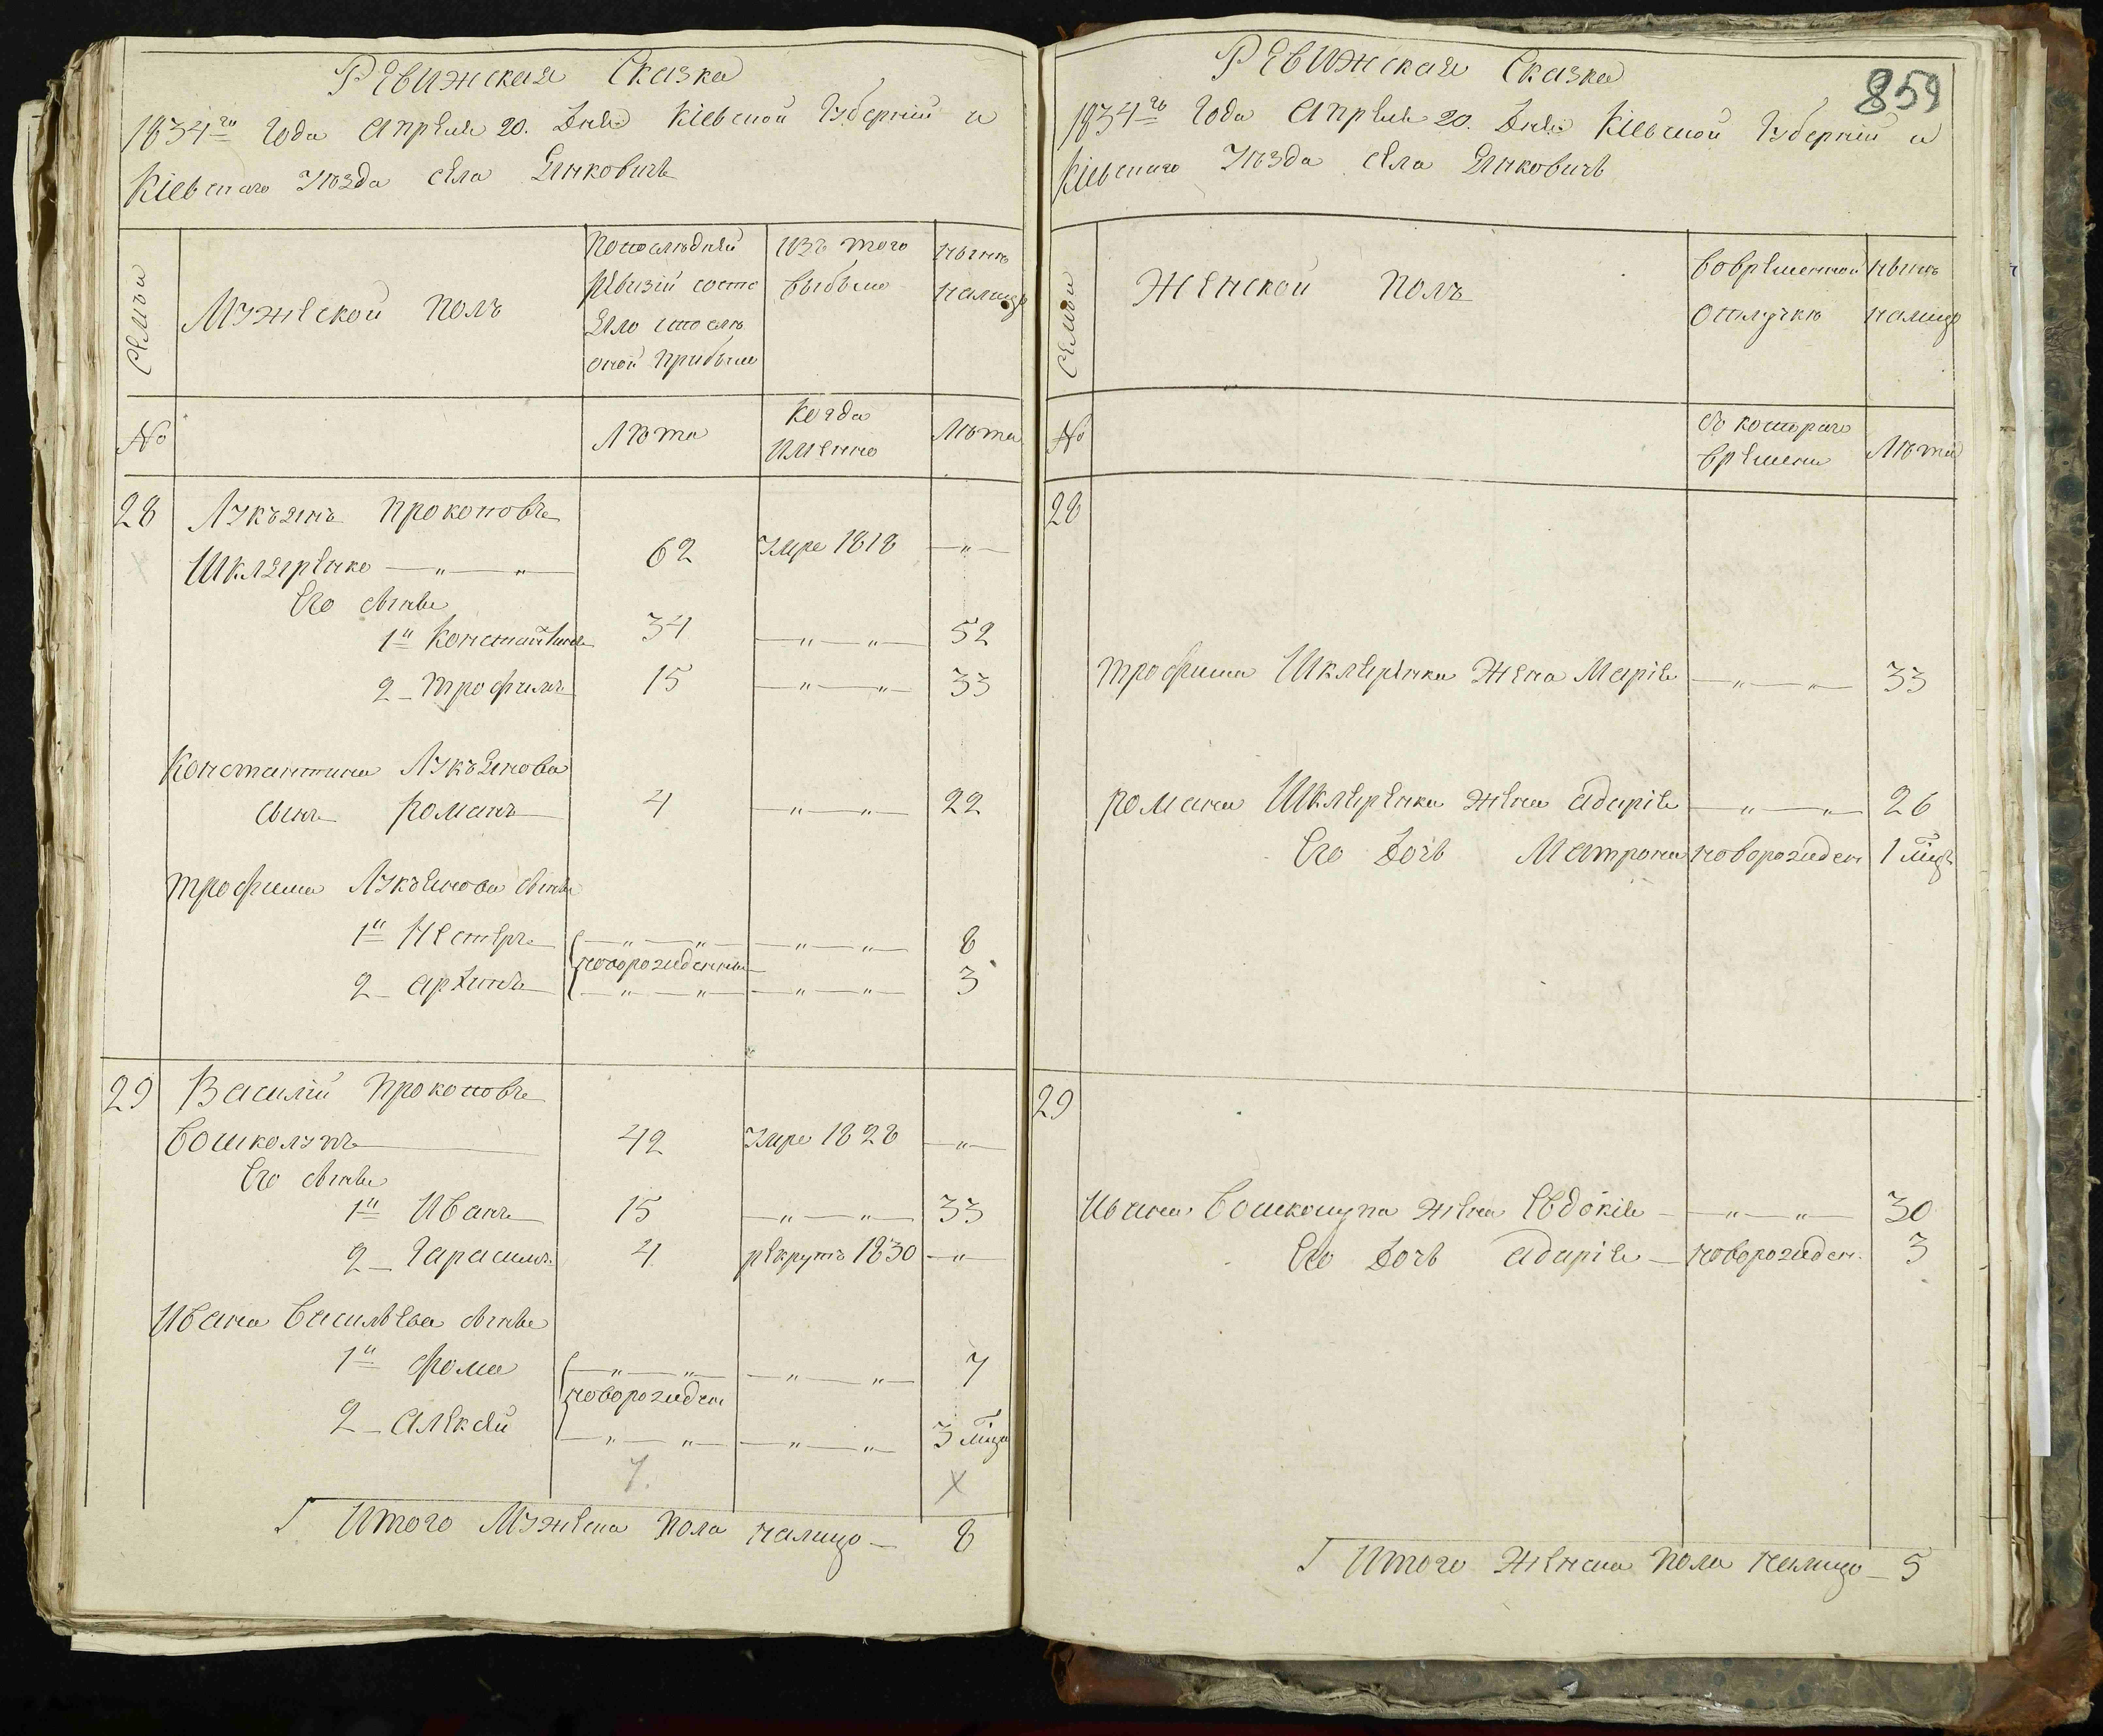 Ревижская Сказка
1834го Года Апреля 20. Дня Кіевской Губерніи и
Кіевскаго Уѣзда Села Янковичь
Семьи
Мужеской полъ
Попослѣдней
Ревизіи состо
Яло ипослѣ
оной прибыло
Изъ того
выбыло
Нынѣ
налицо
№
Лѣта
Когда
Именно
Лѣта
28
Лукъянъ Прокоповъ
Шкляренко — „ — „ —
62
Умре 1818
— „ —
Его Сыны
1й Константинъ
34
— „ — „ —
52
2 — Трофимъ
15
— „ — „ —
33
Константина Лукъянова
Сынъ Романъ
4
— „ — „ —
22
Трофима Лукъянова Сыны
1й Нестеръ
— „ — „ —
— „ — „ —
8
новорожденные
2 —
— „ — „ —
— „ — „ —
3
29
Василій Прокоповъ
Вошколупъ
42
Умре 1828
— „ —
Его Сыны
1й Иванъ
15
— „ — „ —
33
2 — Гарасимъ
4
рекрутъ 1830
— „ —
Ивана Васильева Сыны
1й Фома
— „ — „ —
— „ — „ —
7
новорожден
2 — Алексей
— „ — „ —
— „ — „ —
3 мца
7.
X
Итого Мужеска пола налицо — 8
859
Ревижская Сказка
1834го Года Апреля 20. Дня Кіевской Губерніи и
Кіевскаго Уѣзда Села Янковичь
Семьи
Женской полъ
Вовременной
отлучкѣ
Нынѣ
налицо
№
Съ котораго
времени
Лѣта
28
Трофима Шкляренка жена Марія
— „ — „ —
33
Романа Шкляренка жена Адарія
— „ — „ —
26
Его Дочь Матрона
новорожден
1 мцъ
29
Ивана Вошколупа жена Евдокія
— „ — „ —
30
Его Дочь Адарія —
новорожден.
3
Итого Женска пола налицо — 5